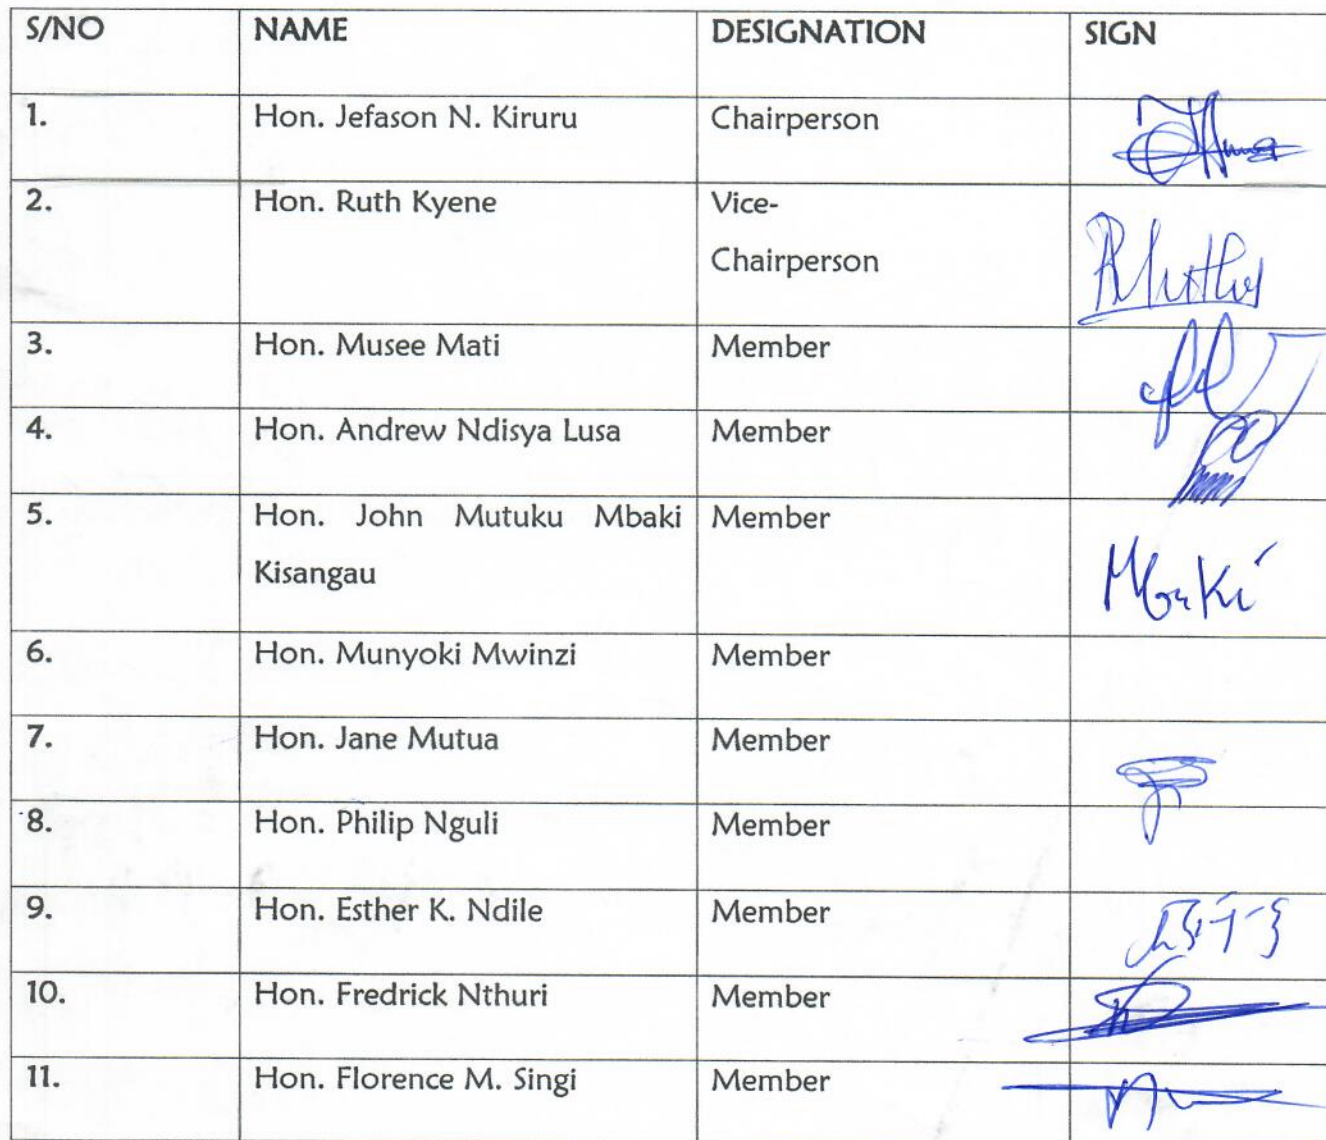 S/NO NAME DESIGNATION SIGN
1. Hon. Jefason N. Kiruru Chairperson
2. Hon. Ruth Kyene Vice-
Chairperson
3. Hon. Musee Mati Member
4. Hon. Andrew Ndisya Lusa Member
5. Hon. John Mutuku Mbaki Member
Kisangau Mbaki
6. Hon. Munyoki Mwinzi Member
7. Hon. Jane Mutua Member
8. Hon. Philip Nguli Member
9. Hon. Esther K. Ndile Member
10. Hon. Fredrick Nthuri Member
11. Hon. Florence M. Singi Member